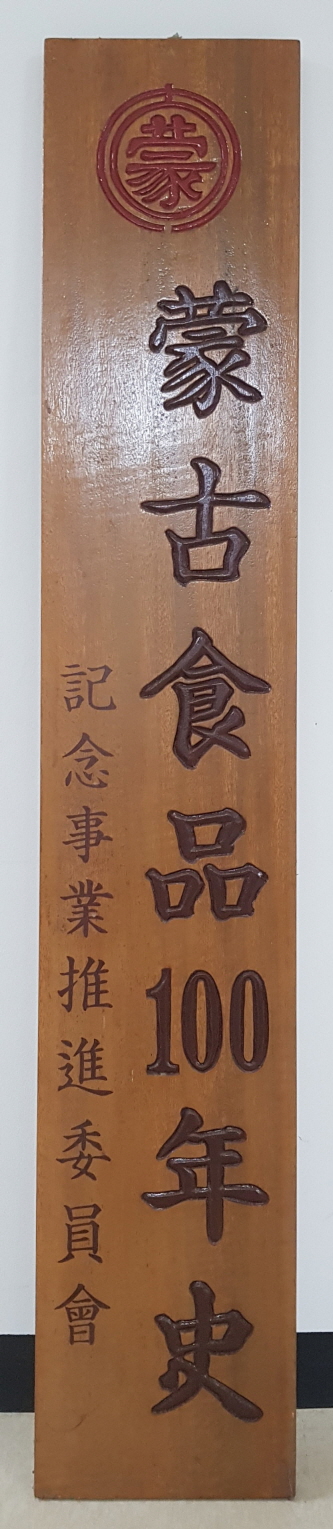 蒙
蒙古食品100年史
記念事業推進委員會